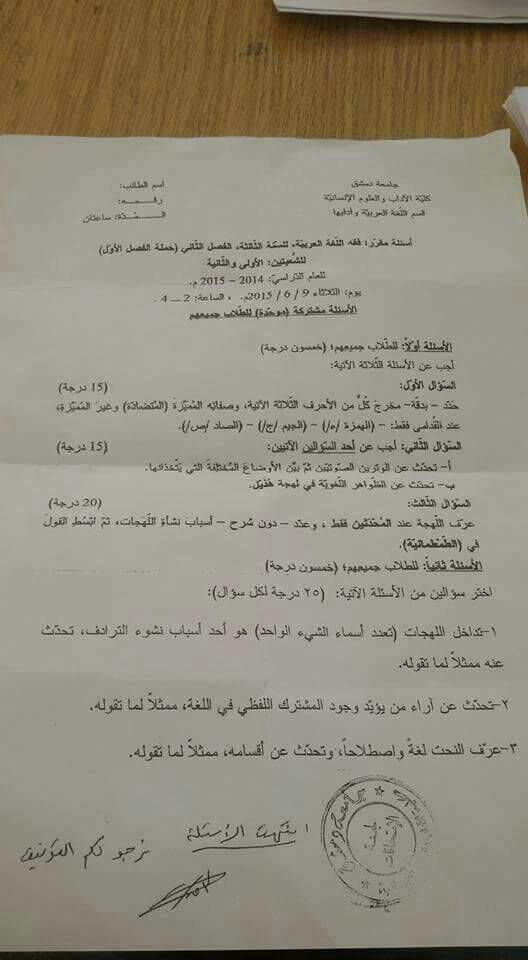 جامعة دمشق
كليّة الآداب والعلوم الإنسانيّة
قسم اللّغة العربيّة وآدابها
اسم الطالب:
رقمــه:
المــدّة: ساعتان
أسئلة مقرّر: فقه اللّغة العربيّة، للسنة الثالثة، الفصل الثّاني (حملة الفصل الأوّل)
للشُّعبتين: الأولى والثّانية
للعام الدّراسيّ: 2014 – 2015 م.
يوم: الثلاثاء 9 / 6 / 2015م. ، الساعة: 2 – 4 .
الأسئلة مشتركة (موحّدة) للطلاب جميعهم
الأسئلة أوّلاً: للطّلاب جميعهم؛ (خمسون درجة)
أجب عن الأسئلة الثّلاثة الآتية:
السؤال الأوّل: (15 درجة)
حدّد – بدقّة – مخرجَ كُلٍّ من الأحرف الثّلاثة الآتية، وصفاتِه المُميّزة (المتضادّة) وغيرَ المميّزة،
عند القُدامى فقط: – (الهمزة /ء/) – (الجيم /ج/) – (الصاد /ص/).
السؤال الثّاني: أجب عن أحد السؤالين الآتيين: (15 درجة)
أ- تحدّث عن الوترين الصّوتيّين ثمّ بيّن الأوضاعَ المُختلِفة التي يتّخذانها.
ب- تحدّث عن الظّواهر اللّغويّة في لهجة هُذَيْل.
السؤال الثّالث: (20 درجة)
عرّف اللّهجة عند المُحْدَثين فقط ، وعدّد – دون شرح – أسبابَ نشأةِ اللّهجات، ثمّ ابْسُطِ القولَ
في (الطّمْطُمانيّة).
الأسئلة ثانياً: للطلاب جميعهم؛ (خمسون درجة)
اختر سؤالين من الأسئلة الآتية: (٢٥ درجة لكل سؤال):
١-تداخل اللهجات (تعدد أسماء الشيء الواحد) هو أحد أسباب نشوء الترادف، تحدّث
عنه ممثلاً لما تقوله.
٢-تحدّث عن آراء من يؤيّد وجود المشترك اللفظي في اللغة، ممثلاً لما تقوله.
٣-عرّف النحت لغةً واصطلاحاً، وتحدّث عن أقسامه، ممثلاً لما تقوله.
انتهت الأسئلة
نرجو لكم التوفيق
لجنة